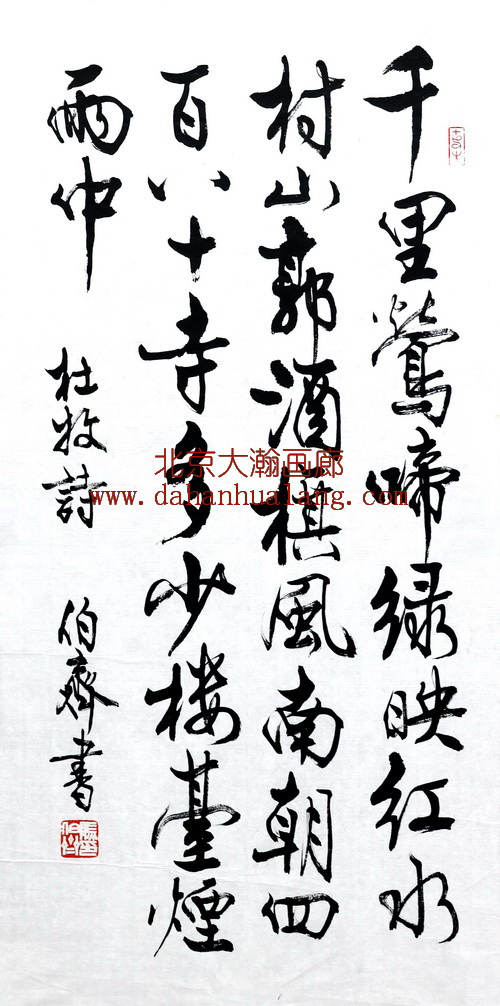 千里鶯啼绿映红水
村山郭酒棋風南朝四
百八十寺多少楼臺煙
雨中
杜牧詩
伯齊書
北京大瀚画廊
www.dahanhualang.com